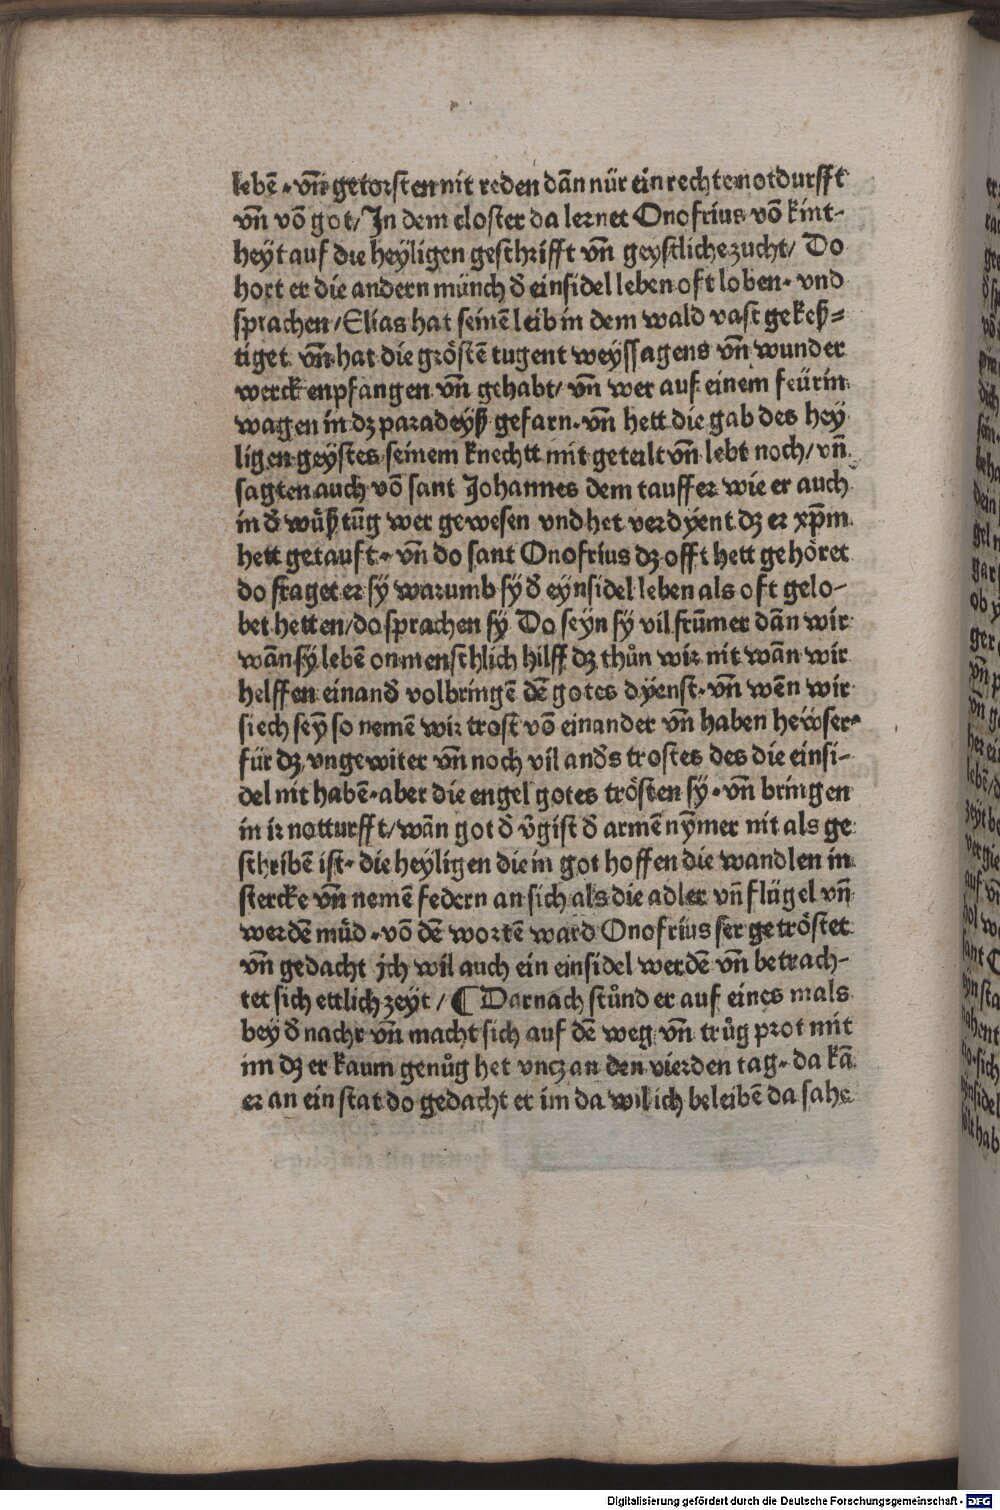 lebē · vñ getorsten nit reden dān nür ein rechte notdurfft
vñ vō got/ In dem closter da lernet Onofrius vō kint-
heyt auf die heyligen geschrifft vñ geystliche zucht/ Do
hort er die andern münch d̄ einsidel leben oft loben · vnd
sprachen/ Elias hat seinē leib in dem wald vast gekeß=
tiget vñ hat die gröstē tugent weyssagens vñ wunder
werck enpfangen vñ gehabt/ vñ wer auf einem feürin
wagen in dz paradeyß gefarn · vñ hett die gab des hey
ligen geystes seinem knechtt mit geteilt vñ lebt noch/ vñ
sagten auch vō sant Johannes dem tauffer wie er auch
in d̄ wüßtūg wer gewesen vnd het verdyent dz er xp̄m
hett getauft · vñ do sant Onofrius dz offt hett gehöret
do fraget er sÿ warumb sÿ d̄ eynsidel leben als oft gelo-
bet hetten/ do sprachen sÿ Do seyn sÿ vil frūmer dān wir
wān sÿ lebē on menschlich hilff dz thůn wir nit wān wir
helffen einand̄ volbringē dē gotes dyenst · vñ wēn wir
siech seȳ so nemē wir trost vō einander vñ haben heẅser
für dz vngewiter vñ noch vil and̄s trostes des die einsi-
del nit habē · aber die engel gotes trösten sÿ · vñ bringen
in ir notturfft/ wān got d̄ v̄gist d̄ armē nȳmer nit als ge
schribē ist · die heyligen die in got hoffen die wandlen in
stercke vñ nemē federn an sich als die adler vñ flügel vñ
werdē müd · vō dē wortē ward Onofrius ser getröstet
vñ gedacht ich wil auch ein einsidel werdē vñ betrach-
tet sich ettlich zeyt/ ¶ Darnach stůnd er auf eines mals
bey d̄ nacht vñ macht sich auf dē weg vñ trůg prot mit
im dz er kaum genůg het vncz an den vierden tag · da kā
er an ein stat do gedacht er im da wil ich beleibē da sahe
Digitalisierung gefördert durch die Deutsche Forschungsgemeinschaft - DFG